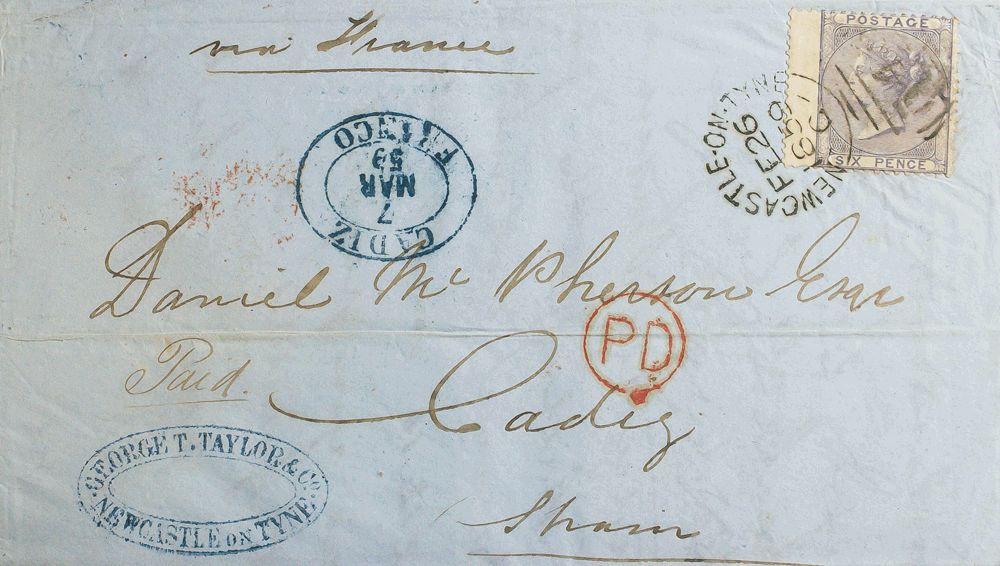 via France
POSTAGE
SIX PENCE
NEWCASTLE-ON-TYNE
FE 26
CADIZ
7
MAR
59
FRANCO
Daniel Mc Pherson Esqr
PD
Paid.
Cadiz
Spain
GEORGE T. TAYLOR & Co.
NEWCASTLE ON TYNE